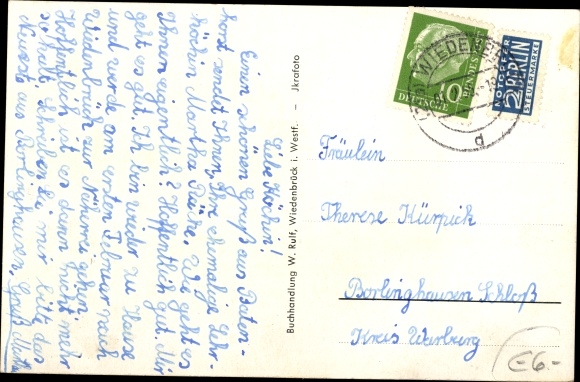 Liebe Köchin!
Einen schönen Gruß aus Baten-
horst sendet Ihnen Ihre ehmalige Lehr-
köchin Martha Wie geht es
Ihnen eigentlich? Hoffentlich gut. Mir
geht es gut. Ich bin wieder zu Hause
und werde am ersten Februar nach
Wiedenbrück zur Näherei gehen.
Hoffentlich ist es dann nicht mehr
so kalt. Schreiben Sie mir bitte das
Neueste aus Borlinghausen. Gruß
Buchhandlung W. Rulf, Wiedenbrück i. Westf. — Jkrafoto
WIEDENBRÜCK
d
DEUTSCHE BUNDESPOST
10
NOTOPFER
2 BERLIN
STEUERMARKE
Fräulein
Therese Kürpick
Borlinghausen Schloß
Kreis Warburg
€6.-